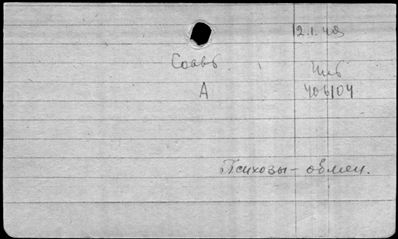 12.1.48
Соавт
Инб
А
406104
Психозы - обмен.